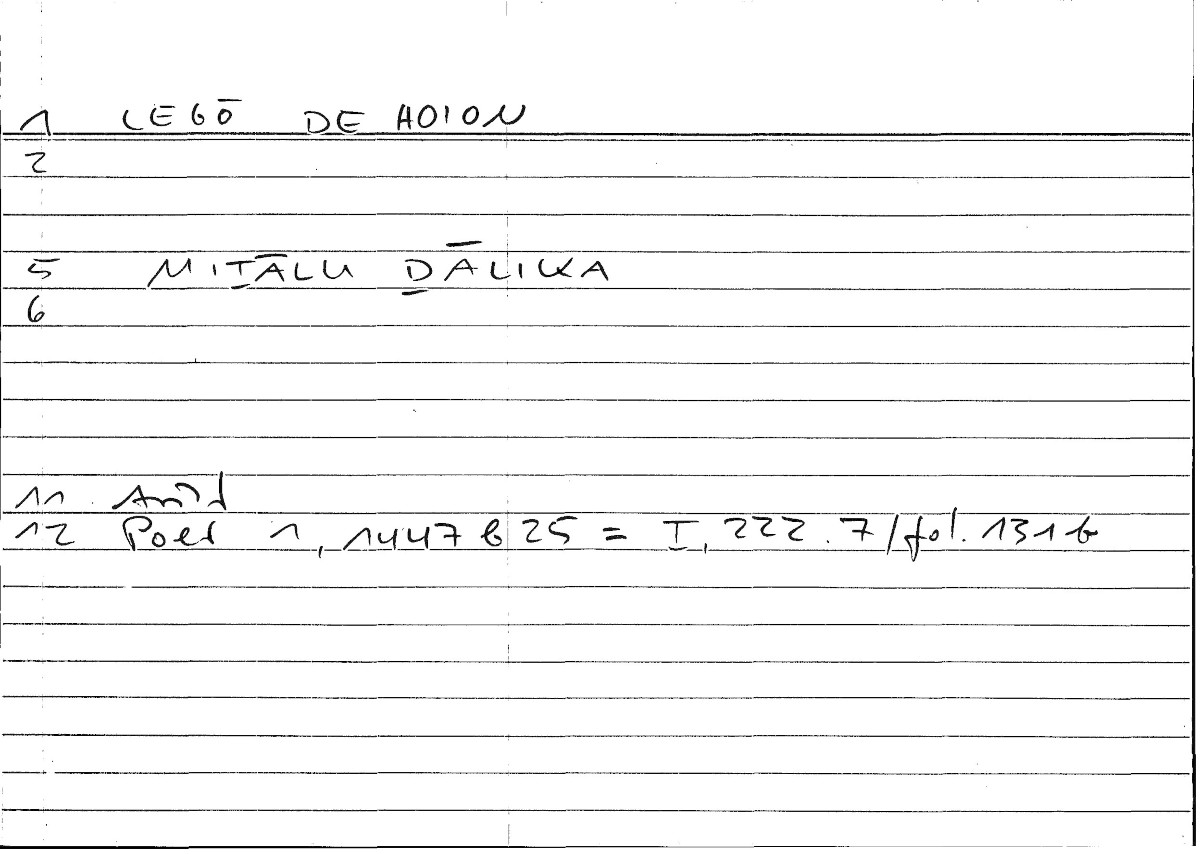 1 LEGŌ DE HOION
2
5 MIṮĀLU ḎĀLIKA
6
11 Arist
12 Poet 1, 1447 b 25 = I, 222.7/fol. 131b